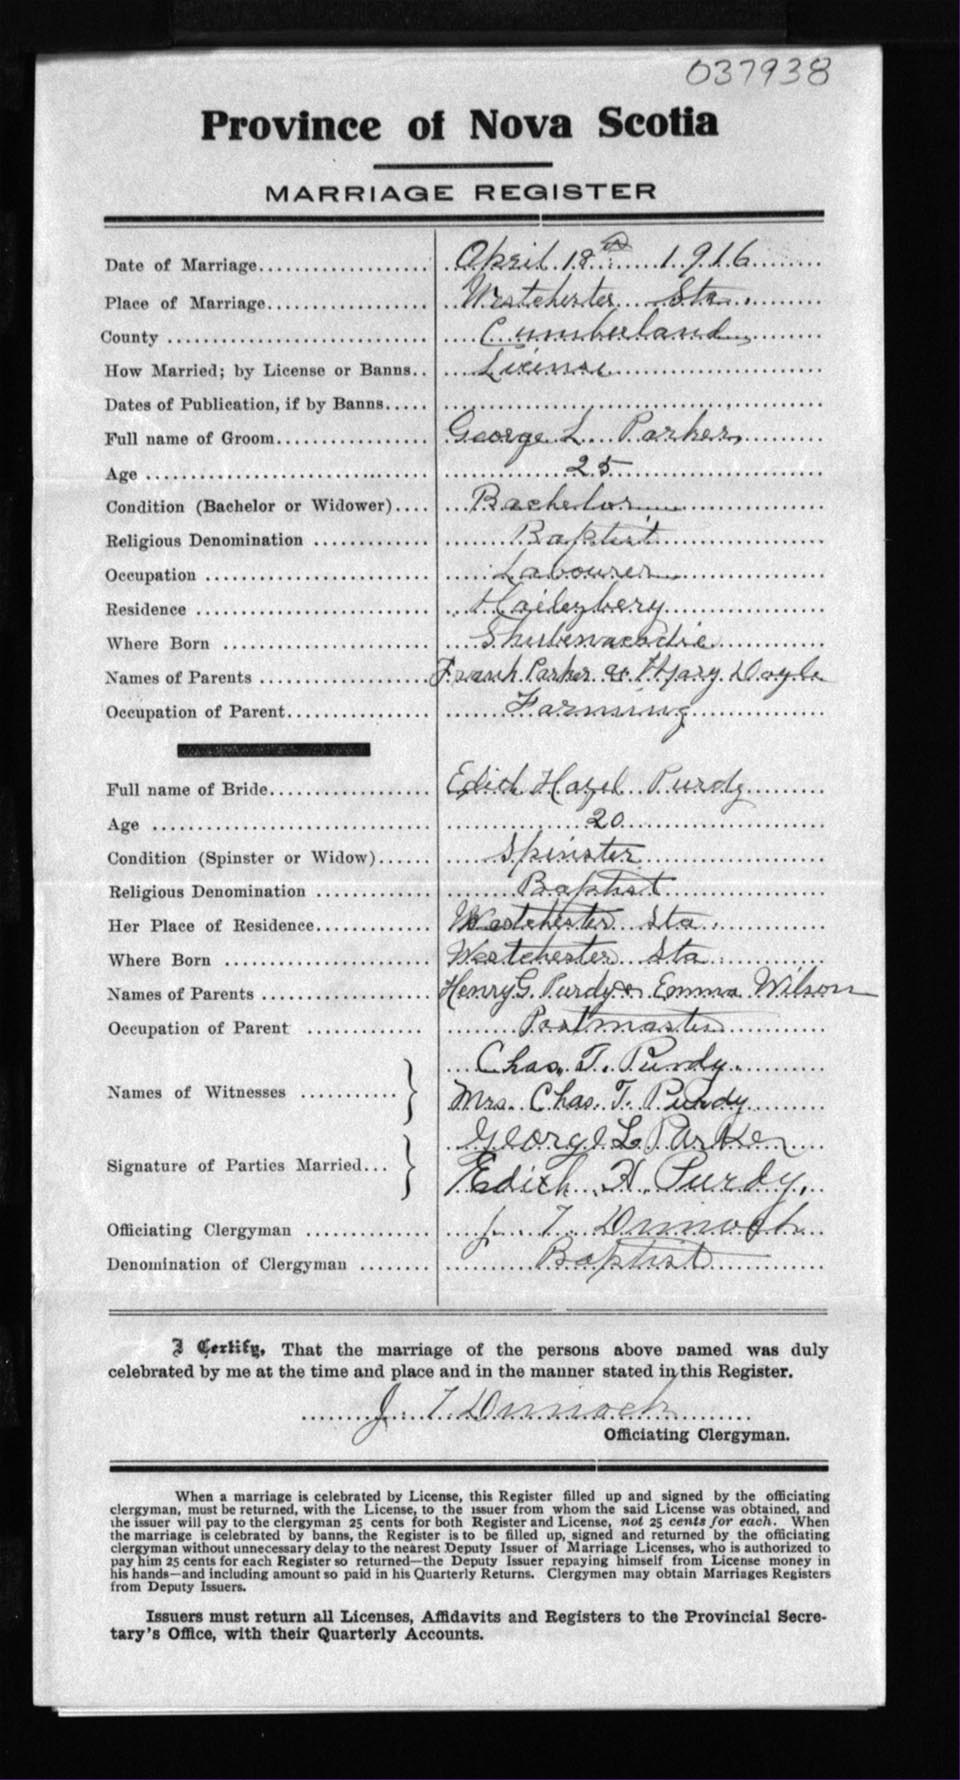 037938
Province of Nova Scotia
MARRIAGE REGISTER
Date of Marriage.................. April 18th 1916
Place of Marriage................. Westchester Sta.
County ............................ Cumberland
How Married; by License or Banns.. License
Dates of Publication, if by Banns.....
Full name of Groom................ George L. Parker
Age ............................... 25
Condition (Bachelor or Widower).... Bachelor
Religious Denomination ............ Baptist
Occupation ........................ Labourer
Residence ......................... Haileybery
Where Born ........................ Shubenacadie
Names of Parents .................. Frank Parker & Mary Doyle
Occupation of Parent............... Farming
Full name of Bride................. Edith Hazel Purdy
Age ............................... 20
Condition (Spinster or Widow)...... Spinster
Religious Denomination ............ Baptist
Her Place of Residence............. Westchester Sta.
Where Born ........................ Westchester Sta
Names of Parents .................. Henry G. Purdy & Emma Wilson
Occupation of Parent .............. Postmaster
Chas. T. Purdy.
Names of Witnesses ........... } Mrs. Chas. T. Purdy
George L Parker
Signature of Parties Married... } Edith H Purdy.
Officiating Clergyman ............. J. T. Dimock
Denomination of Clergyman ........ Baptist
I Certify, That the marriage of the persons above named was duly
celebrated by me at the time and place and in the manner stated in this Register.
J. T. Dimock
Officiating Clergyman.
When a marriage is celebrated by License, this Register filled up and signed by the officiating
clergyman, must be returned, with the License, to the issuer from whom the said License was obtained, and
the issuer will pay to the clergyman 25 cents for both Register and License, not 25 cents for each. When
the marriage is celebrated by banns, the Register is to be filled up, signed and returned by the officiating
clergyman without unnecessary delay to the nearest Deputy Issuer of Marriage Licenses, who is authorized to
pay him 25 cents for each Register so returned—the Deputy Issuer repaying himself from License money in
his hands—and including amount so paid in his Quarterly Returns. Clergymen may obtain Marriages Registers
from Deputy Issuers.
Issuers must return all Licenses, Affidavits and Registers to the Provincial Secre-
tary's Office, with their Quarterly Accounts.